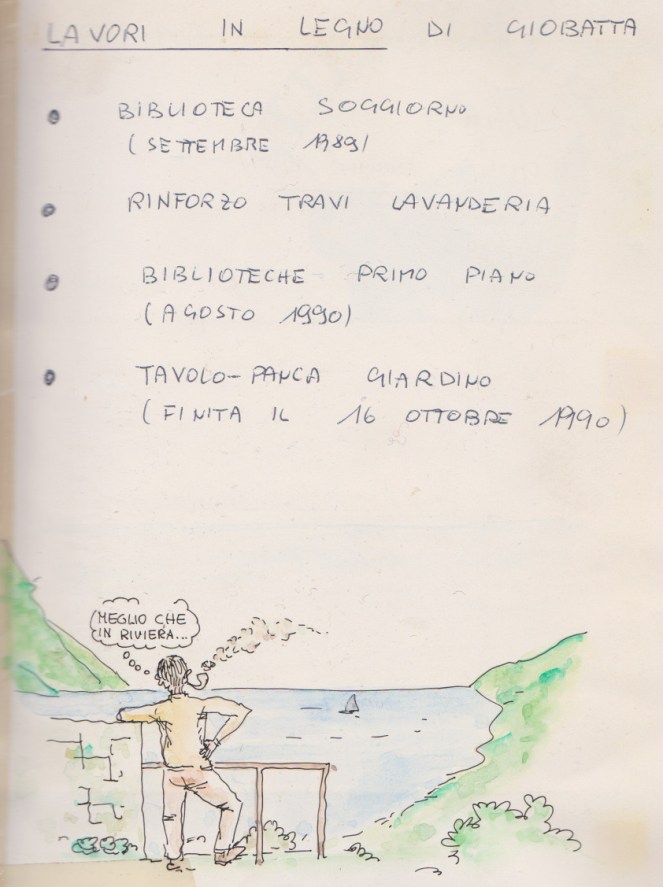 LAVORI IN LEGNO DI GIOBATTA
BIBLIOTECA SOGGIORNO
(SETTEMBRE 1989)
RINFORZO TRAVI LAVANDERIA
BIBLIOTECHE PRIMO PIANO
(AGOSTO 1990)
TAVOLO-PANCA GIARDINO
(FINITA IL 16 OTTOBRE 1990)
MEGLIO CHE
IN RIVIERA...